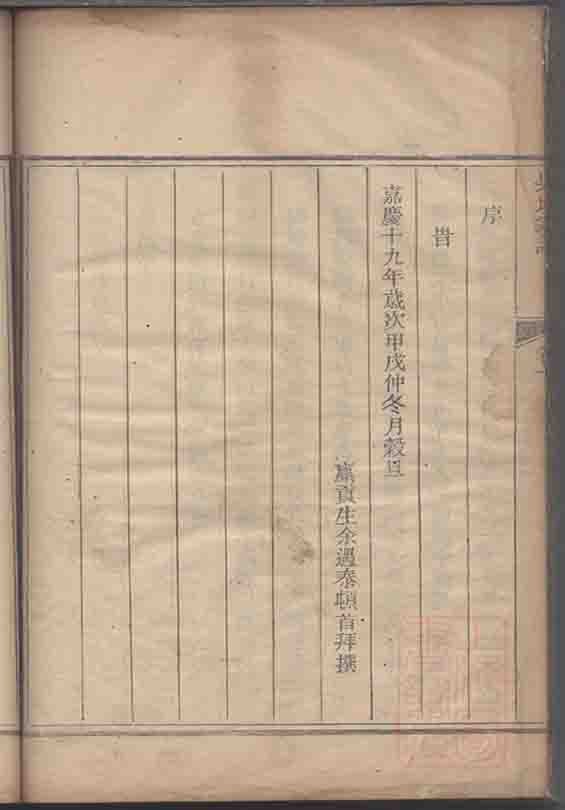 序
旹
嘉慶十九年歲次甲戌仲冬月穀旦
廩貢生余遇泰頓首拜撰